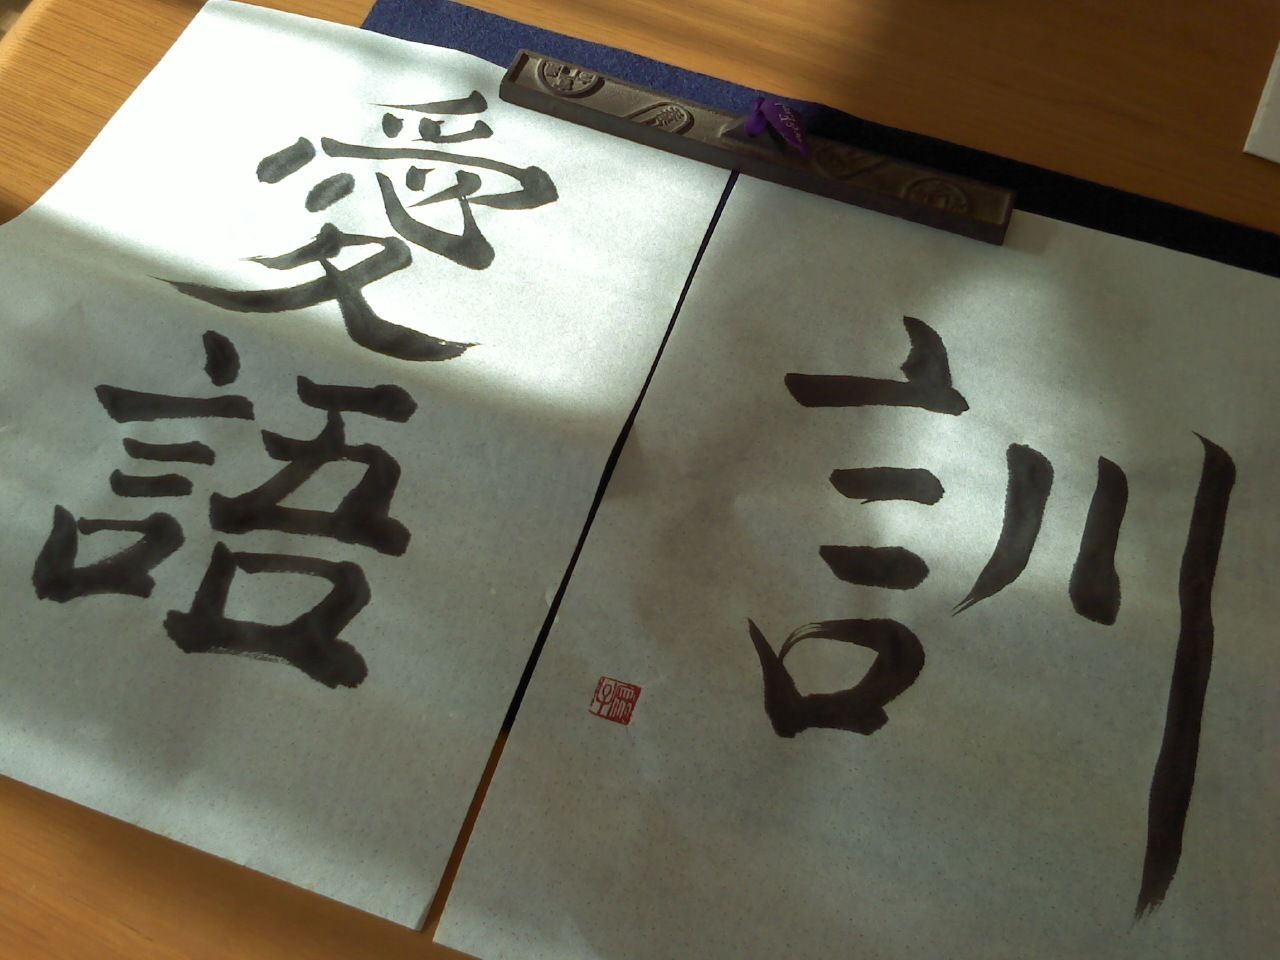 愛語
訓